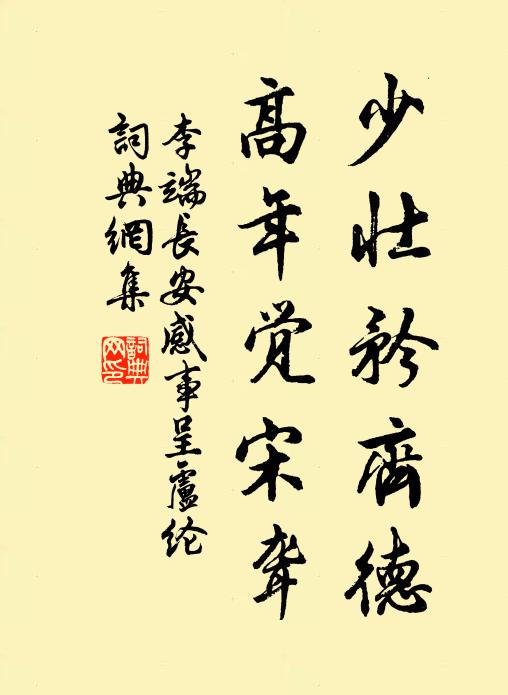 少壮矜齊德
高年觉宋聋
李端長安感事呈盧纶
詞典網集
詞典
网印